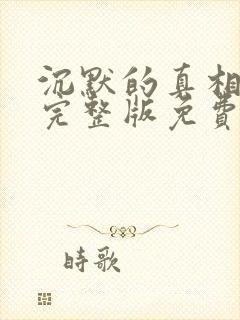 沉默的真相
完整版免費
時歌